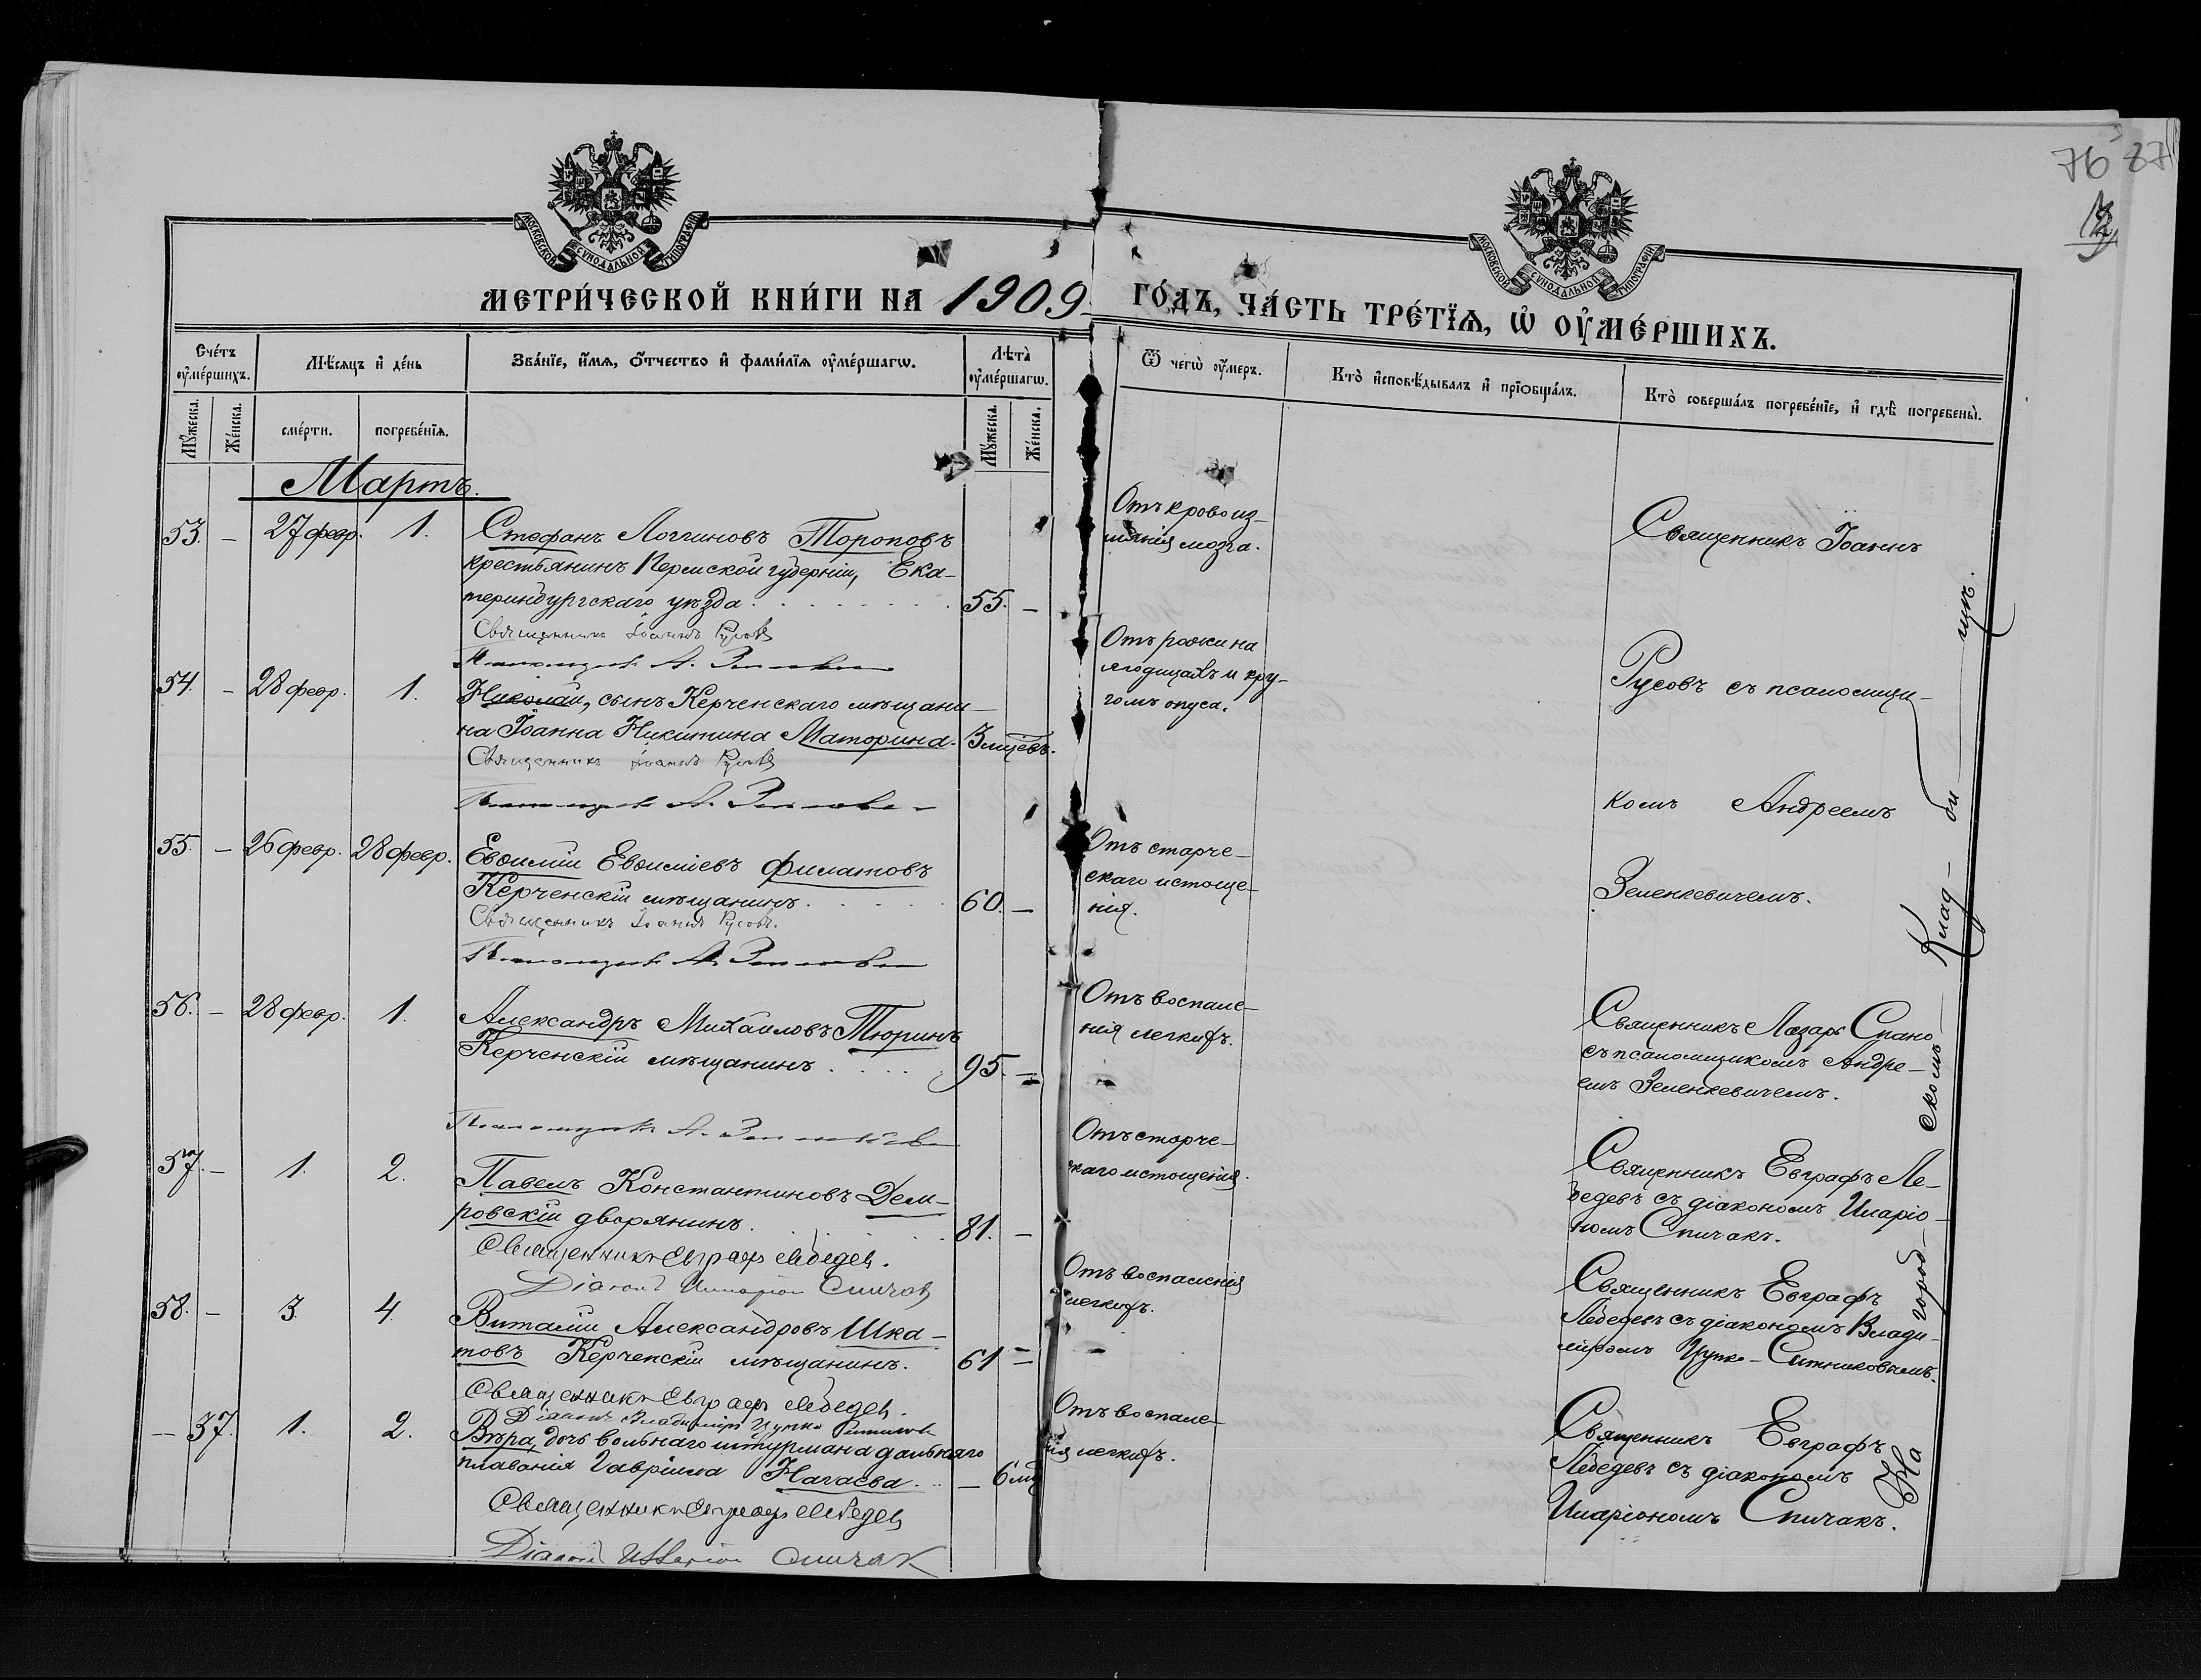 76 87
МОСКОВСКОЙ СУНОДАЛЬНОЙ ТИПОГРАФІИ
МОСКОВСКОЙ СУНОДАЛЬНОЙ ТИПОГРАФІИ
МЕТРИ́ЧЕСКОЙ КНИ́ГИ НА 1909 ГО́ДЪ, ЧА́СТЬ ТРЕ́ТЇѦ, Ѽ ОУ҆МЕ́РШИХЪ.
Сче́тъ оу҆ме́ршихъ.
Мѣ́сяцъ и҆ де́нь
Зва́нїе, и҆́мѧ, ѻ҆́тчество и҆ фами́лїѧ оу҆ме́ршагѡ.
Лѣ́та оу҆ме́ршагѡ.
Ѿ чегѡ̀ оу҆́меръ.
Кто̀ и҆сповѣ́дывалъ и҆ прїѡбща́лъ.
Кто̀ соверша́лъ погребе́нїе, и҆ гдѣ̀ погребены̀.
Мꙋ́жеска.
Же́нска.
сме́рти.
погребе́нїѧ.
Мꙋ́жеска.
Же́нска.
Мартъ.
53. – 27 февр. 1. Стефанъ Логгиновъ Тороповъ
крестьянинъ Пермской губерніи, Ека-
теринбургскаго уѣзда. 55. –
Священникъ Іоаннъ Русовъ
Псаломщикъ А. Зеленкевичъ
Отъ кровоиз-
ліянія мозга.
Священникъ Іоаннъ
54. – 28 февр. 1. Николай, сынъ Керченскаго мѣщани-
на Іоанна Никитина Маторина. 3 мѣсев.
Священникъ Іоаннъ Русовъ
Псаломщикъ А. Зеленкевичъ
Отъ рожи на
ягодицахъ и кру-
гомъ ануса.
Русовъ съ псаломщи-
комъ Андреемъ
55. – 26 февр. 28 февр. Евѳимій Евѳиміевъ Филатовъ
Керченскій мѣщанинъ. 60. –
Священникъ Іоаннъ Русовъ.
Псаломщикъ А. Зеленкевичъ
Отъ старче-
скаго истоще-
нія.
Зеленкевичемъ.
56. – 28 февр. 1. Александръ Михаиловъ Тюринъ
Керченскій мѣщанинъ. 95. –
Псаломщикъ А. Зеленкевичъ
Отъ воспале-
нія легкихъ.
Священникъ Лазарь Спано
съ псаломщикомъ Андре-
емъ Зеленкевичемъ.
57. – 1. 2. Павелъ Константиновъ Дем-
ровскій дворянинъ. 81. –
Священникъ Евграфъ Лебедевъ.
Діаконъ Иларіон Спичак
Отъ старче-
скаго истощенія.
Священникъ Евграфъ Ле-
бедевъ съ діакономъ Иларіо-
номъ Спичакъ.
58. – 3. 4. Виталій Александровъ Шка-
товъ Керченскій мѣщанинъ. 61 –
Священникъ Евграфъ Лебедевъ.
Діаконъ Владиміръ Цупко Ситников
Отъ воспаленія
легкихъ.
Священникъ Евграфъ
Лебедевъ съ діакономъ Влади-
міромъ Цупко-Ситниковымъ.
– 37. 1. 2. Вѣра, дочь вольнаго штурмана дальняго
плаванія Гавріила Нагаева. – 6 мѣ
Священникъ Евграфъ Лебедевъ
Діаконъ Илларіон Спичак
Отъ воспале-
нія легкихъ.
Священникъ Евграфъ
Лебедевъ съ діакономъ
Иларіономъ Спичакъ.
На город- скомъ Клад- би- щѣ.